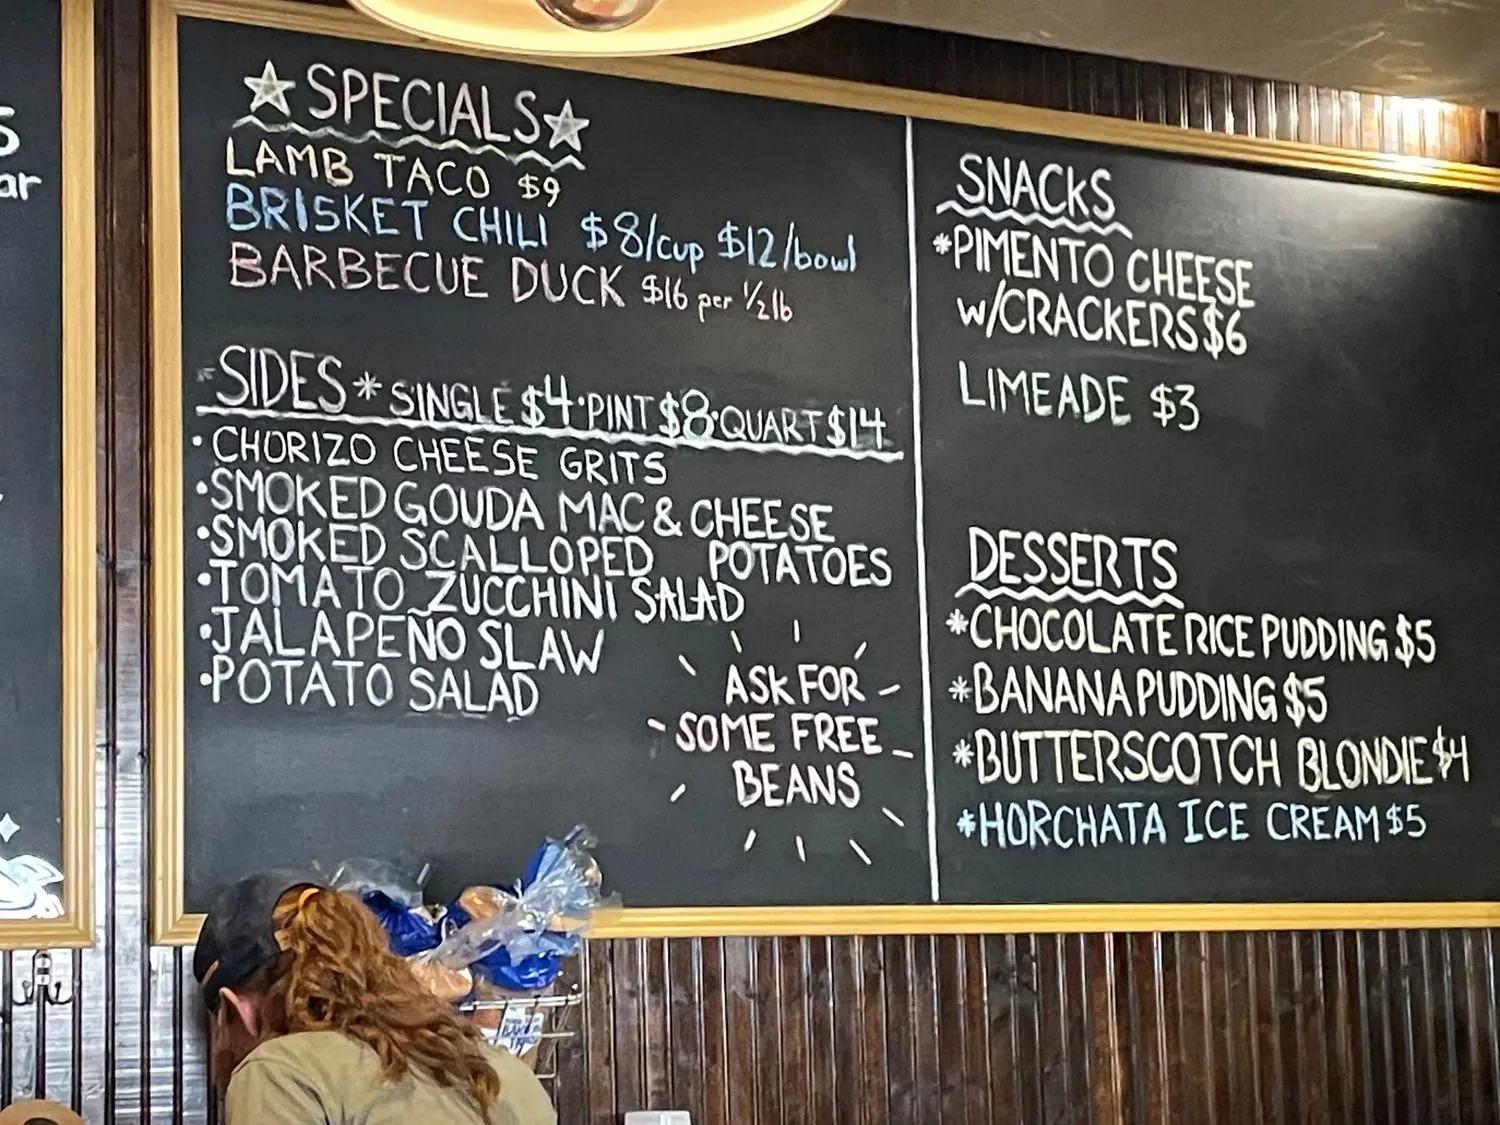 S
ar
SPECIALS
LAMB TACO $9
BRISKET CHILI $8/cup $12/bowl
BARBECUE DUCK $16 per 1/2 lb
SIDES * SINGLE $4 · PINT $8 · QUART $14
• CHORIZO CHEESE GRITS
• SMOKED GOUDA MAC & CHEESE
• SMOKED SCALLOPED POTATOES
• TOMATO ZUCCHINI SALAD
• JALAPEÑO SLAW
• POTATO SALAD
ASK FOR
SOME FREE
BEANS
SNACKS
*PIMENTO CHEESE
w/CRACKERS $6
LIMEADE $3
DESSERTS
*CHOCOLATE RICE PUDDING $5
*BANANA PUDDING $5
*BUTTERSCOTCH BLONDIE $4
*HORCHATA ICE CREAM $5